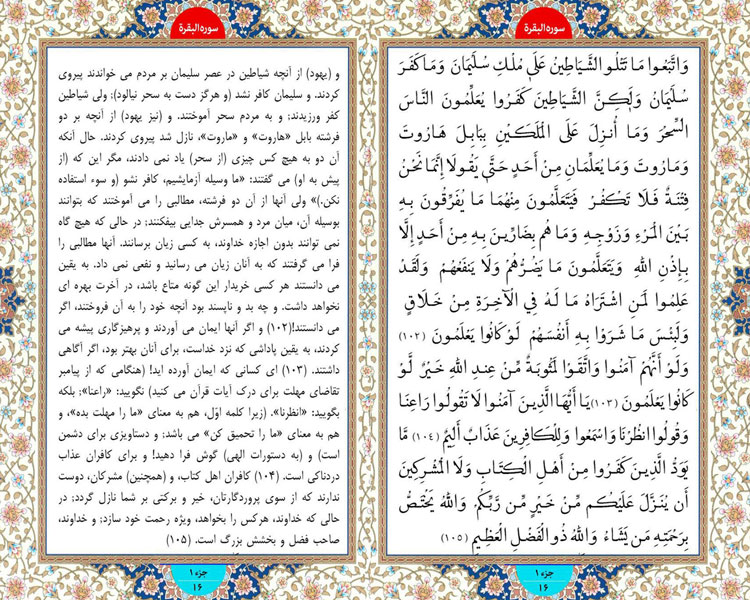 سوره‌البقرة
وَاتَّبَعُوا مَا تَتْلُو الشَّيَاطِينُ عَلَىٰ مُلْكِ سُلَيْمَانَ وَمَا كَفَرَ
سُلَيْمَانُ وَلَٰكِنَّ الشَّيَاطِينَ كَفَرُوا يُعَلِّمُونَ النَّاسَ
السِّحْرَ وَمَا أُنزِلَ عَلَى الْمَلَكَيْنِ بِبَابِلَ هَارُوتَ
وَمَارُوتَ وَمَا يُعَلِّمَانِ مِنْ أَحَدٍ حَتَّىٰ يَقُولَا إِنَّمَا نَحْنُ
فِتْنَةٌ فَلَا تَكْفُرْ فَيَتَعَلَّمُونَ مِنْهُمَا مَا يُفَرِّقُونَ بِهِ
بَيْنَ الْمَرْءِ وَزَوْجِهِ وَمَا هُم بِضَارِّينَ بِهِ مِنْ أَحَدٍ إِلَّا
بِإِذْنِ اللَّهِ وَيَتَعَلَّمُونَ مَا يَضُرُّهُمْ وَلَا يَنفَعُهُمْ وَلَقَدْ
عَلِمُوا لَمَنِ اشْتَرَاهُ مَا لَهُ فِي الْآخِرَةِ مِنْ خَلَاقٍ
وَلَبِئْسَ مَا شَرَوْا بِهِ أَنْفُسَهُمْ لَوْ كَانُوا يَعْلَمُونَ (۱۰۲)
وَلَوْ أَنَّهُمْ آمَنُوا وَاتَّقَوْا لَمَثُوبَةٌ مِّنْ عِندِ اللَّهِ خَيْرٌ لَّوْ
كَانُوا يَعْلَمُونَ (۱۰۳) يَا أَيُّهَا الَّذِينَ آمَنُوا لَا تَقُولُوا رَاعِنَا
وَقُولُوا انْظُرْنَا وَاسْمَعُوا وَلِلْكَافِرِينَ عَذَابٌ أَلِيمٌ (۱۰۴) مَّا
يَوَدُّ الَّذِينَ كَفَرُوا مِنْ أَهْلِ الْكِتَابِ وَلَا الْمُشْرِكِينَ
أَن يُنَزَّلَ عَلَيْكُم مِّنْ خَيْرٍ مِّن رَّبِّكُمْ وَاللَّهُ يَخْتَصُّ
بِرَحْمَتِهِ مَن يَشَاءُ وَاللَّهُ ذُو الْفَضْلِ الْعَظِيمِ (۱۰۵)
جزء ۱
۱۶
سوره‌البقرة
و (یهود) از آنچه شیاطین در عصر سلیمان بر مردم می خواندند پیروی
کردند. و سلیمان کافر نشد (و هرگز دست به سحر نیالود)؛ ولی شیاطین
کفر ورزیدند؛ و به مردم سحر آموختند. و (نیز یهود) از آنچه بر دو
فرشته بابل «هاروت» و «ماروت»، نازل شد پیروی کردند. حال آنکه
آن دو به هیچ کس چیزی (از سحر) یاد نمی دادند، مگر این که (از
پیش به او) می گفتند: «ما وسیله آزمایشیم، کافر نشو (و سوء استفاده
نکن.)» ولی آنها از آن دو فرشته، مطالبی را می آموختند که بتوانند
بوسیله آن، میان مرد و همسرش جدایی بیفکنند؛ در حالی که هیچ گاه
نمی توانند بدون اجازه خداوند، به کسی زیان برسانند. آنها مطالبی را
فرا می گرفتند که به آنان زیان می رسانید و نفعی نمی داد. به یقین
می دانستند هر کسی خریدار این گونه متاع باشد، در آخرت بهره ای
نخواهد داشت. و چه بد و ناپسند بود آنچه خود را به آن فروختند، اگر
می دانستند!(۱۰۲) و اگر آنها ایمان می آوردند و پرهیزگاری پیشه می
کردند، به یقین پاداشی که نزد خداست، برای آنان بهتر بود، اگر آگاهی
داشتند. (۱۰۳) ای کسانی که ایمان آورده اید! (هنگامی که از پیامبر
تقاضای مهلت برای درک آیات قرآن می کنید) نگویید: «راعنا»؛ بلکه
بگویید: «انظرنا». (زیرا کلمه اوّل، هم به معنای «ما را مهلت بده»، و
هم به معنای «ما را تحمیق کن» می باشد؛ و دستاویزی برای دشمن
است) و (به دستورات الهی) گوش فرا دهید! و برای کافران عذاب
دردناکی است. (۱۰۴) کافران اهل کتاب، و (همچنین) مشرکان، دوست
ندارند که از سوی پروردگارتان، خیر و برکتی بر شما نازل گردد؛ در
حالی که خداوند، هرکس را بخواهد، ویژه رحمت خود سازد؛ و خداوند،
صاحب فضل و بخشش بزرگ است. (۱۰۵)
جزء ۱
۱۶